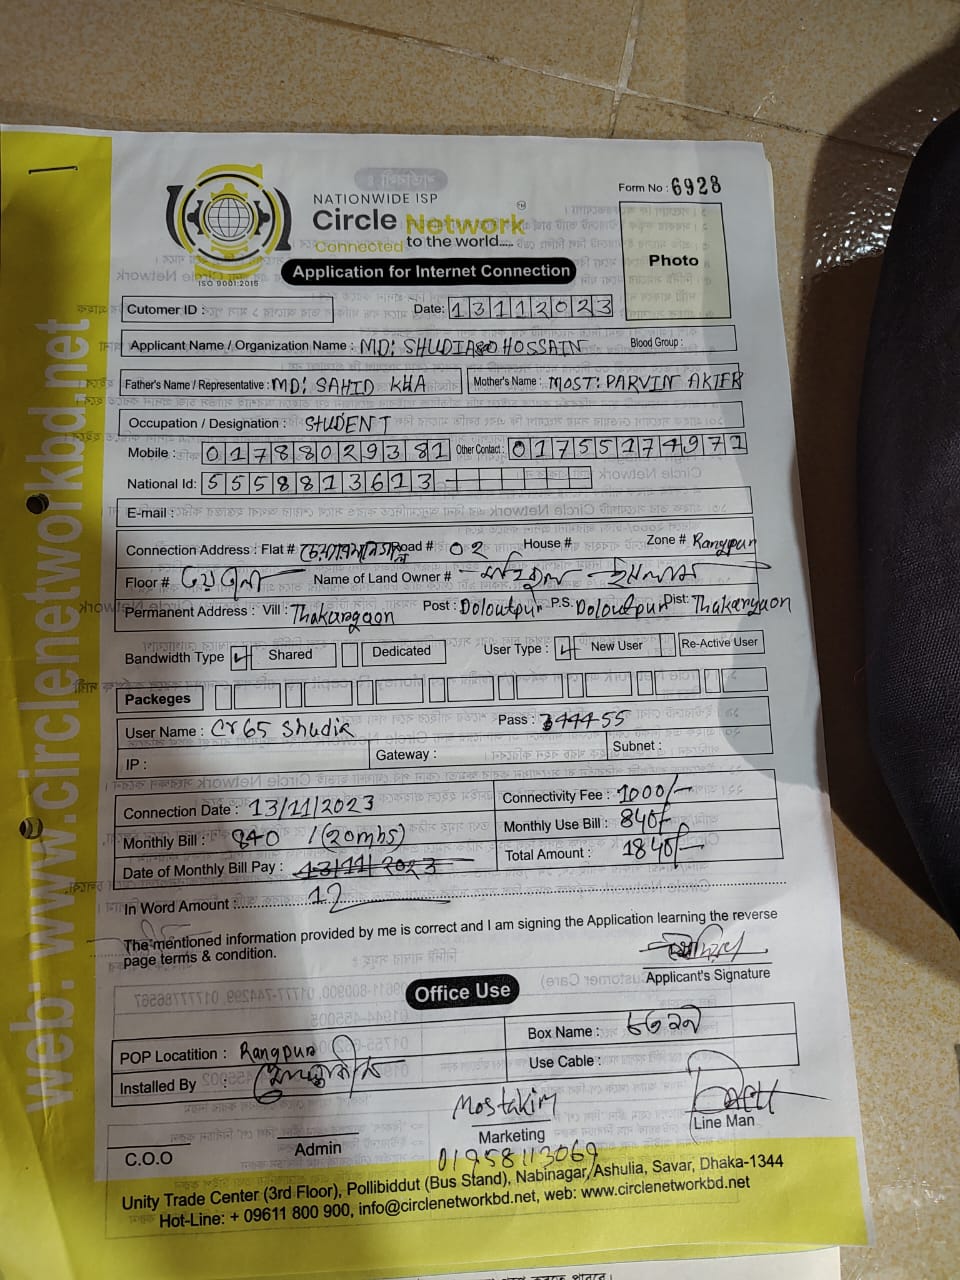 NATIONWIDE ISP
Circle Network
Connected to the world.....
ISO 9001:2015
Form No : 6928
Photo
Application for Internet Connection
Cutomer ID :
Date: 13112023
Applicant Name / Organization Name : MD: SHUDIA HOSSAIN Blood Group :
Father's Name / Representative : MD: SAHID KHA Mother's Name : MOST: PARVIN AKTER
Occupation / Designation : STUDENT
Mobile : 01788029381 Other Contact : 01755174971
National Id: 5558813613
E-mail :
Connection Address : Flat # Road # 02 House # Zone # Rangpur
Floor # Name of Land Owner #
Permanent Address : Vill : Thakurgaon Post : Doloutpur P.S. Doloutpur Dist: Thakargaon
Bandwidth Type Shared Dedicated User Type : New User Re-Active User
Packeges
User Name : Cr65 Shudia Pass : 344455
IP : Gateway : Subnet :
Connection Date : 13/11/2023 Connectivity Fee : 1000/-
Monthly Bill : 840 /(20mbs) Monthly Use Bill : 840/-
Date of Monthly Bill Pay : 13/11/2023 Total Amount : 1840/-
12
In Word Amount :
The mentioned information provided by me is correct and I am signing the Application learning the reverse
page terms & condition.
Applicant's Signature
Office Use
POP Locatition : Rangpur Box Name :
Installed By : Use Cable :
Mostakim
C.O.O Admin Marketing Line Man
01958113069
Unity Trade Center (3rd Floor), Pollibiddut (Bus Stand), Nabinagar, Ashulia, Savar, Dhaka-1344
Hot-Line: + 09611 800 900, info@circlenetworkbd.net, web: www.circlenetworkbd.net
web: www.circlenetworkbd.net